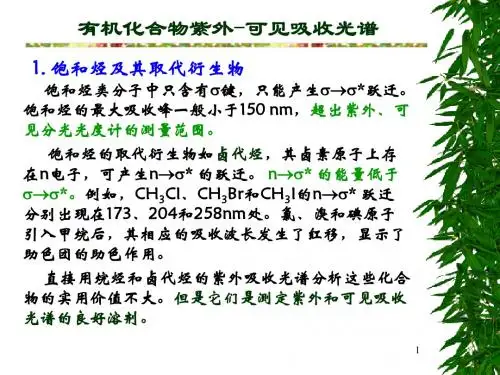 有机化合物紫外-可见吸收光谱
1. 饱和烃及其取代衍生物
饱和烃类分子中只含有σ键，只能产生σ→σ*跃迁。
饱和烃的最大吸收峰一般小于150 nm，超出紫外、可
见分光光度计的测量范围。
饱和烃的取代衍生物如卤代烃，其卤素原子上存
在n电子，可产生n→σ* 的跃迁。 n→σ* 的能量低于
σ→σ*。例如，CH₃Cl、CH₃Br和CH₃I的n→σ* 跃迁
分别出现在173、204和258nm处。氯、溴和碘原子
引入甲烷后，其相应的吸收波长发生了红移，显示了
助色团的助色作用。
直接用烷烃和卤代烃的紫外吸收光谱分析这些化合
物的实用价值不大。但是它们是测定紫外和可见吸收
光谱的良好溶剂。
1